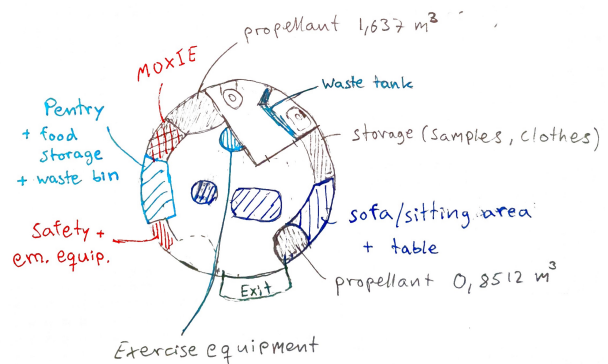 propellant 1,637 m³
MOXIE
waste tank
Pentry
+ food
storage
+ waste bin
storage (samples, clothes)
sofa/sitting area
+ table
Safety +
em. equip.
propellant 0,8512 m³
Exit
Exercise equipment